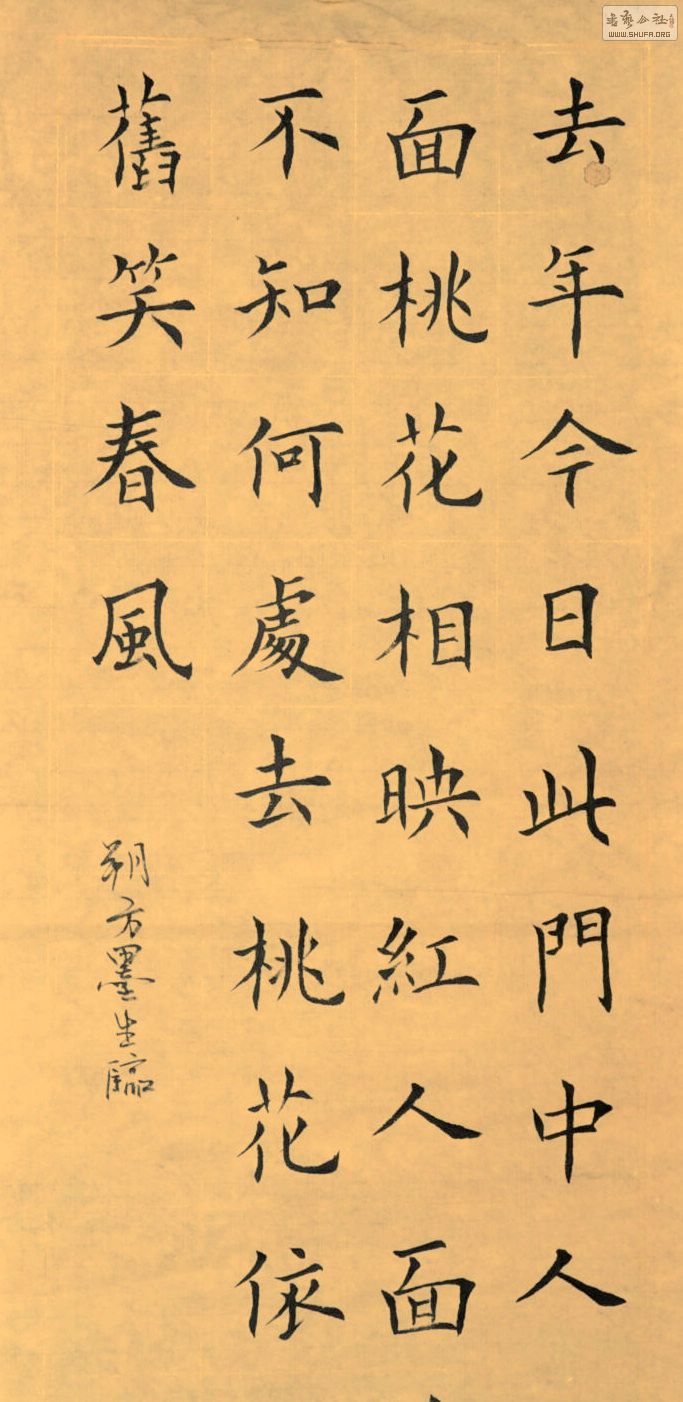 去年今日此門中人
面桃花相映紅人面
不知何處去桃花依
舊笑春風
朔方墨生臨
WWW.SHUFA.ORG